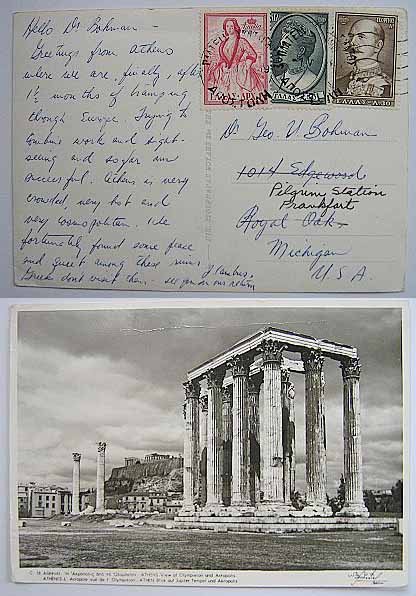 Hello Dr Bohman -
Greetings from Athens
where we are, finally, after
1½ months of tramping
though Europe. Trying to
combine work and sight-
seeing and so far are
successful. Athens is very
crowded, very hot and
very cosmopolitan. I've
fortunately found some peace
and quiet among these ruins,
Greeks don't visit them - see you on our return
Dr Geo. V. Bohman
1014 Edgewood
Pilgrim Station
Frankfort
Royal Oak,
Michigan
U.S.A.
ΕΛΛΑΣ
ΕΛΛΑΣ ΔΡ. 10
ATHENS View of Olympieion and Acropolis
ATHÈNES L'Acropole vue de l'Olympieion. ATHEN Blick auf Jupiter-Tempel und Akropolis